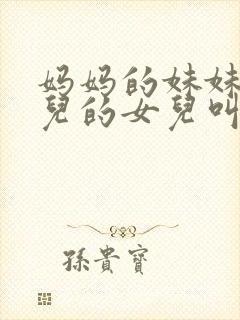 妈妈的妹妹
兒的女兒叫
孫貴寶